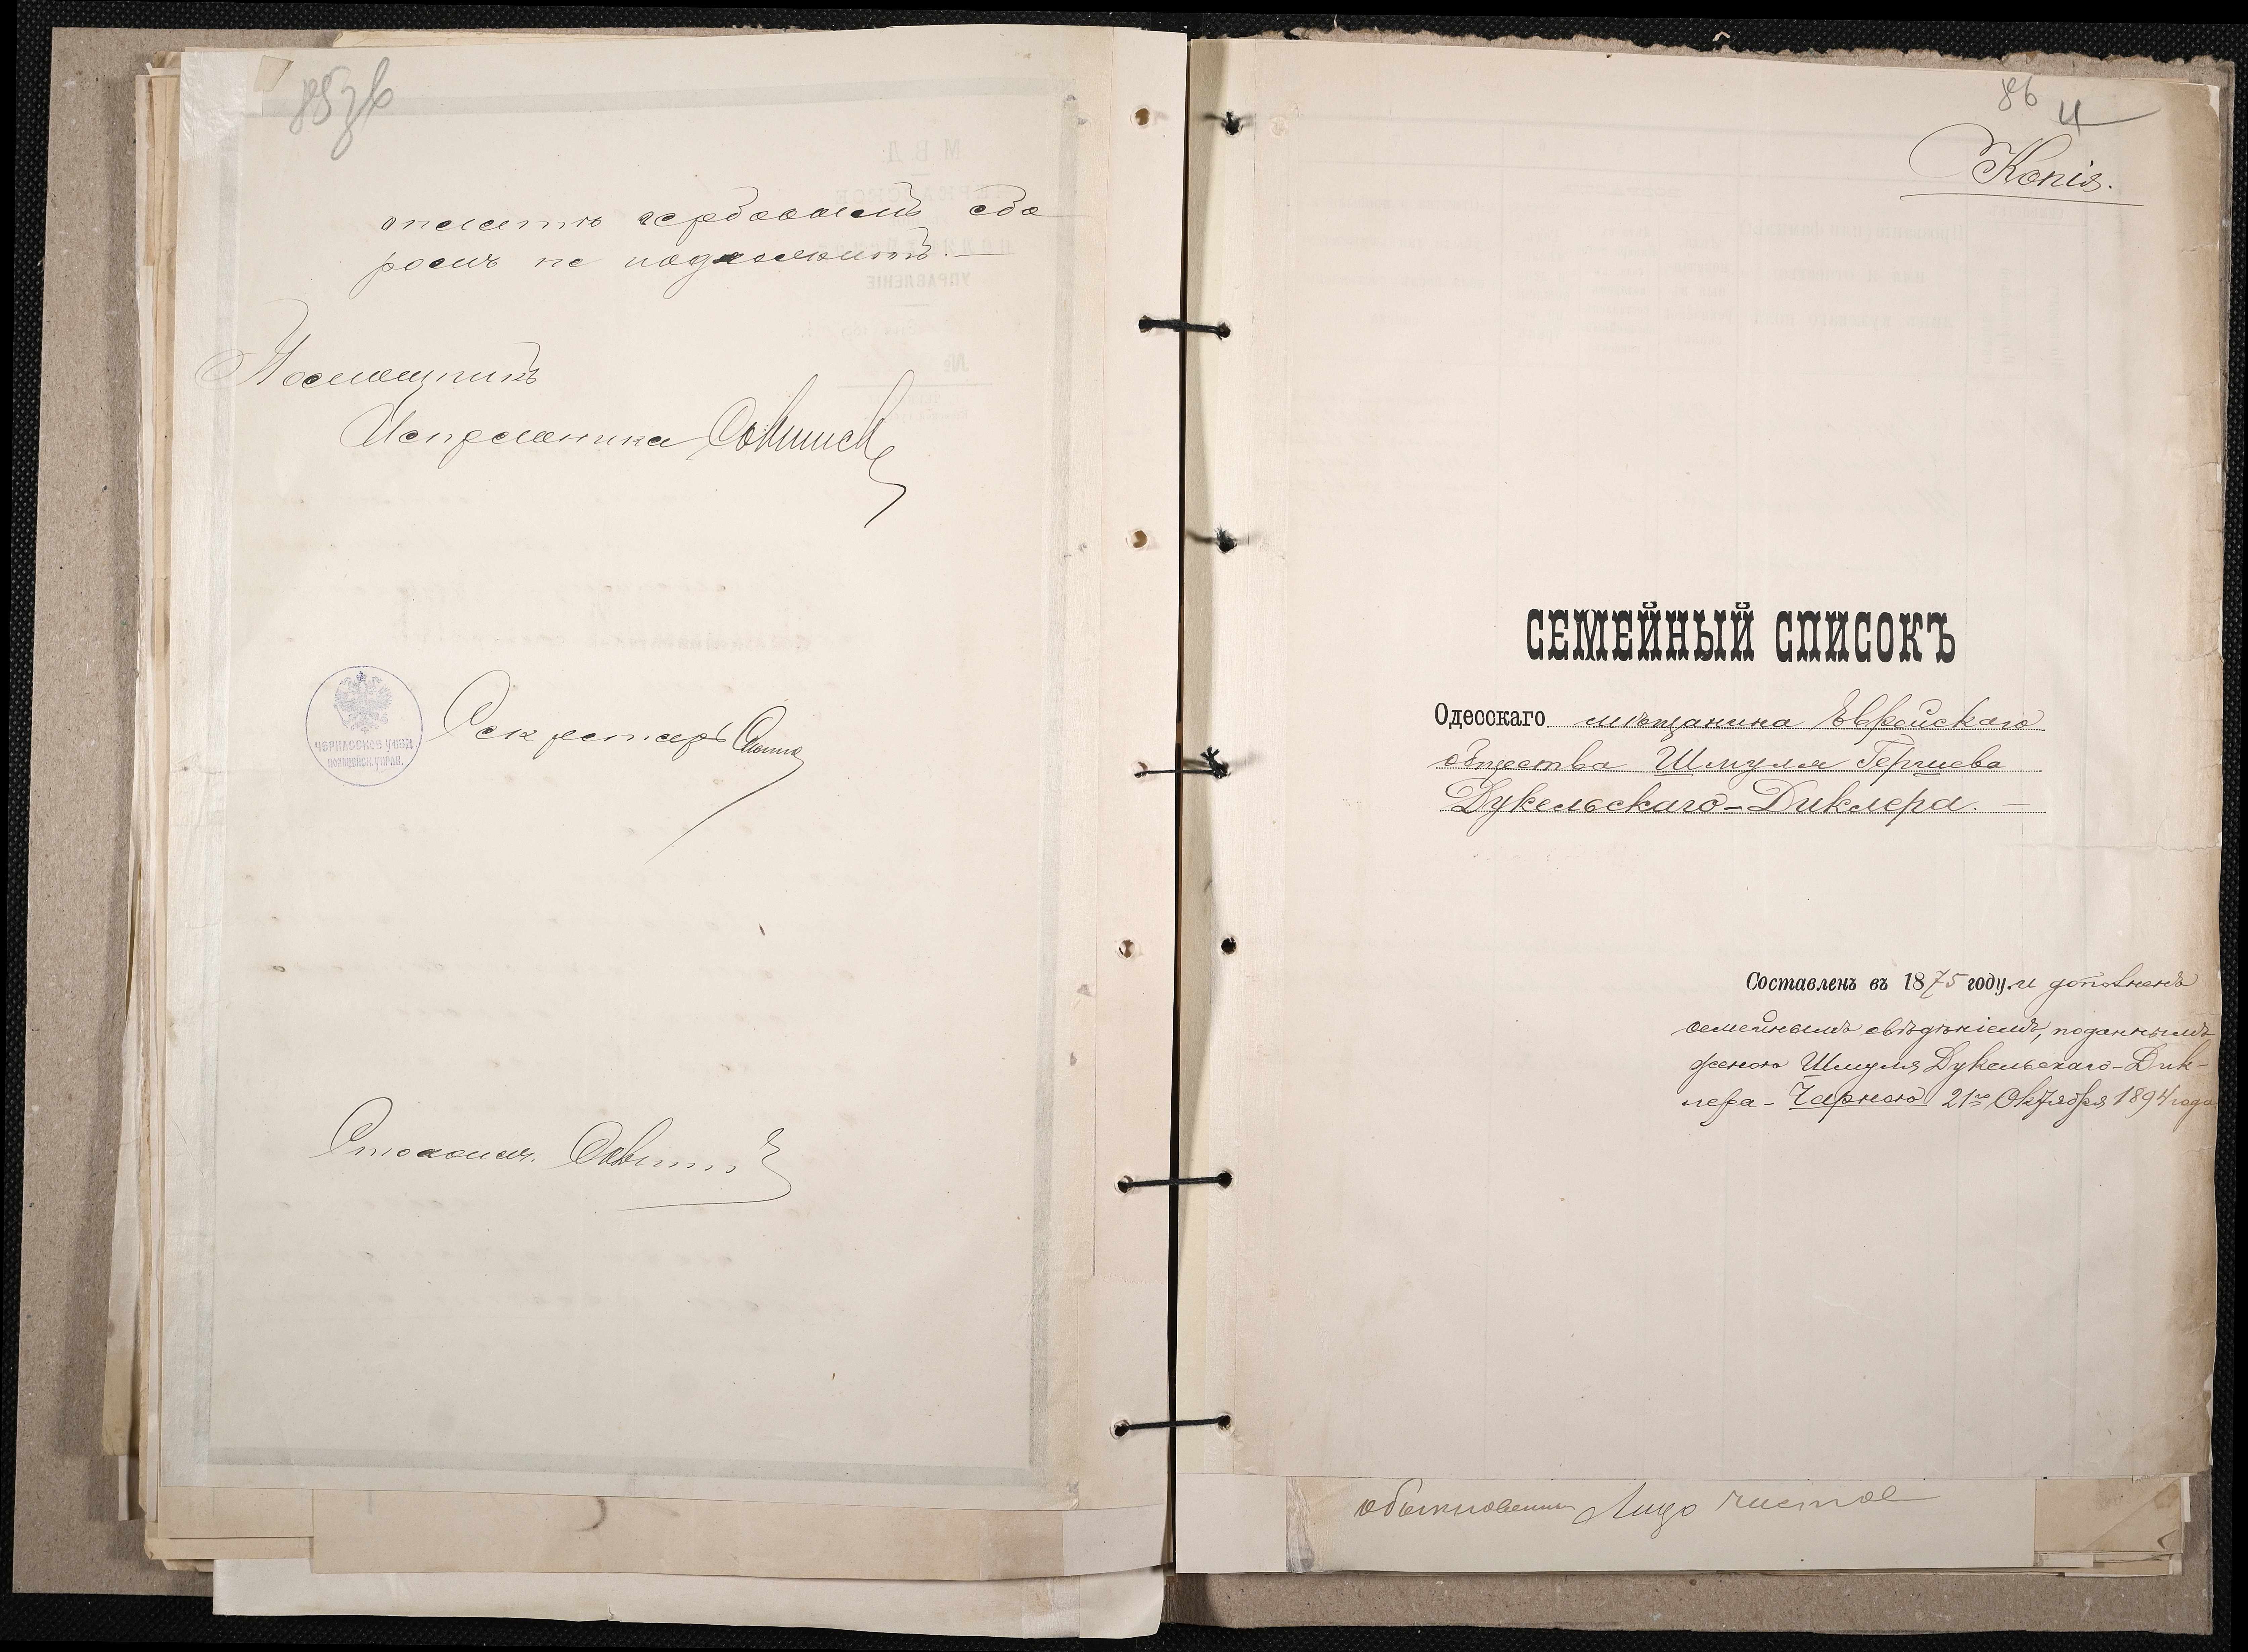 85 зв
оплатѣ гербовымъ сбо
ромъ не подлежитъ.
Помощникъ
Исправника
Секретарь
ЧЕРКАССКОЕ УѢЗД.
ПОЛИЦЕЙСК. УПРАВ.
Столонач.
86 4
Копія.
СЕМЕЙНЫЙ СПИСОКЪ
Одесскаго мѣщанина Еврейскаго
общества Шмуля Гершева
Дукельскаго-Диклера.
Составленъ въ 1875 году. и дополненъ
семейнымъ свѣдѣніемъ, поданнымъ
женою Шмуля Дукельскаго-Дик-
лера - Чарною 21го Октября 1894 года
обыкновенны Лицо чистое
М В Д
УПРАВЛЕНІЕ
№